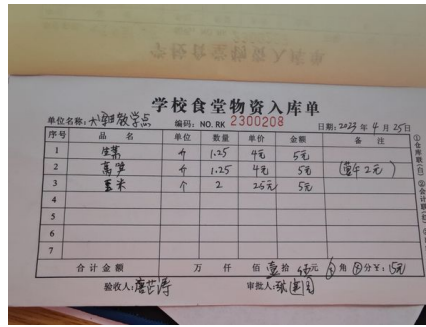 学校食堂物资入库单
学校食堂物资入库单
单位名称：大湾田教学点 编码：NO.RK 2300208 日期：2023年4月25日
序号 品名 单位 数量 单价 金额 备注
1 生菜 斤 1.25 4元 5元
2 莴笋 斤 1.25 4元 5元
3 玉米 个 2 2.5元 5元
4
5
6
7
合计金额 万 仟 佰 壹拾 伍元 角 分 ¥：15元
验收人： 审批人：